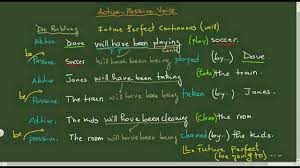 Active-Passive Voice
Future Perfect Continuous (will)
Active. Dave will have been playing (play) soccer.
be
Passive. Soccer will have been being played (by...) Dave.
Active. Jones will have been taking (take) the train.
be
Passive. The train will have been being taken (by...) Jones.
Active. The kids will have been cleaning (clean) the room.
be
passive. The room will have been being cleaned (by...) the kids.
Future Perfect
(be going to)...